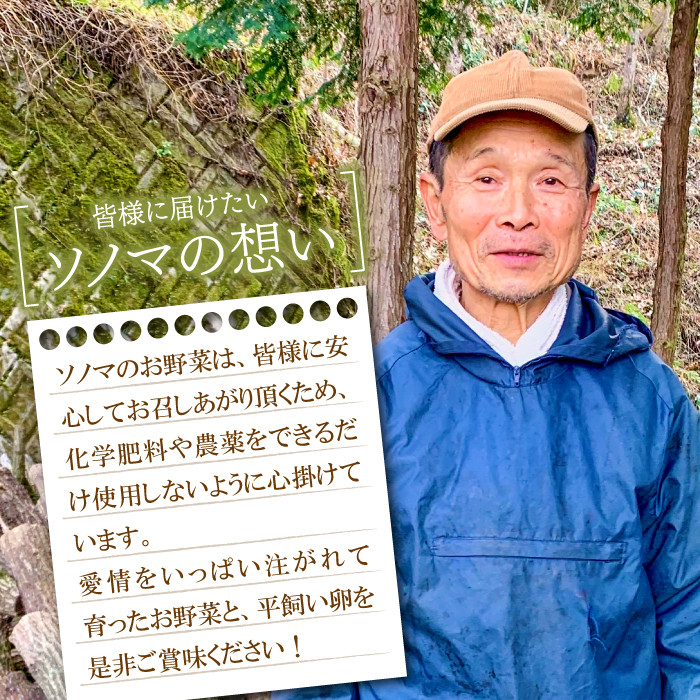 皆様に届けたい
ソノマの想い
ソノマのお野菜は、皆様に安
心してお召しあがり頂くため、
化学肥料や農薬をできるだ
け使用しないように心掛けて
います。
愛情をいっぱい注がれて
育ったお野菜と、平飼い卵を
是非ご賞味ください！